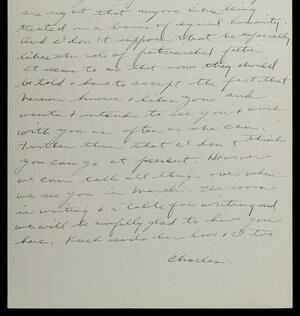 are right that anyone likes being
treated on a basis of equal humanity.
And I don't suppose that he especially
likes the role of patriarchal father
It seems to me that now they should
be told & have to accept the fact that
Vernon knows & likes you and
wants & intends to see you & work
with you as often as she can.
Further than that I don't think
you can go at present. However
we can talk all thing- over when
we see you in March. The room
is waiting & a table for writing and
we will be awfully glad to have you
here. Kach sends her love & I too
Charles.